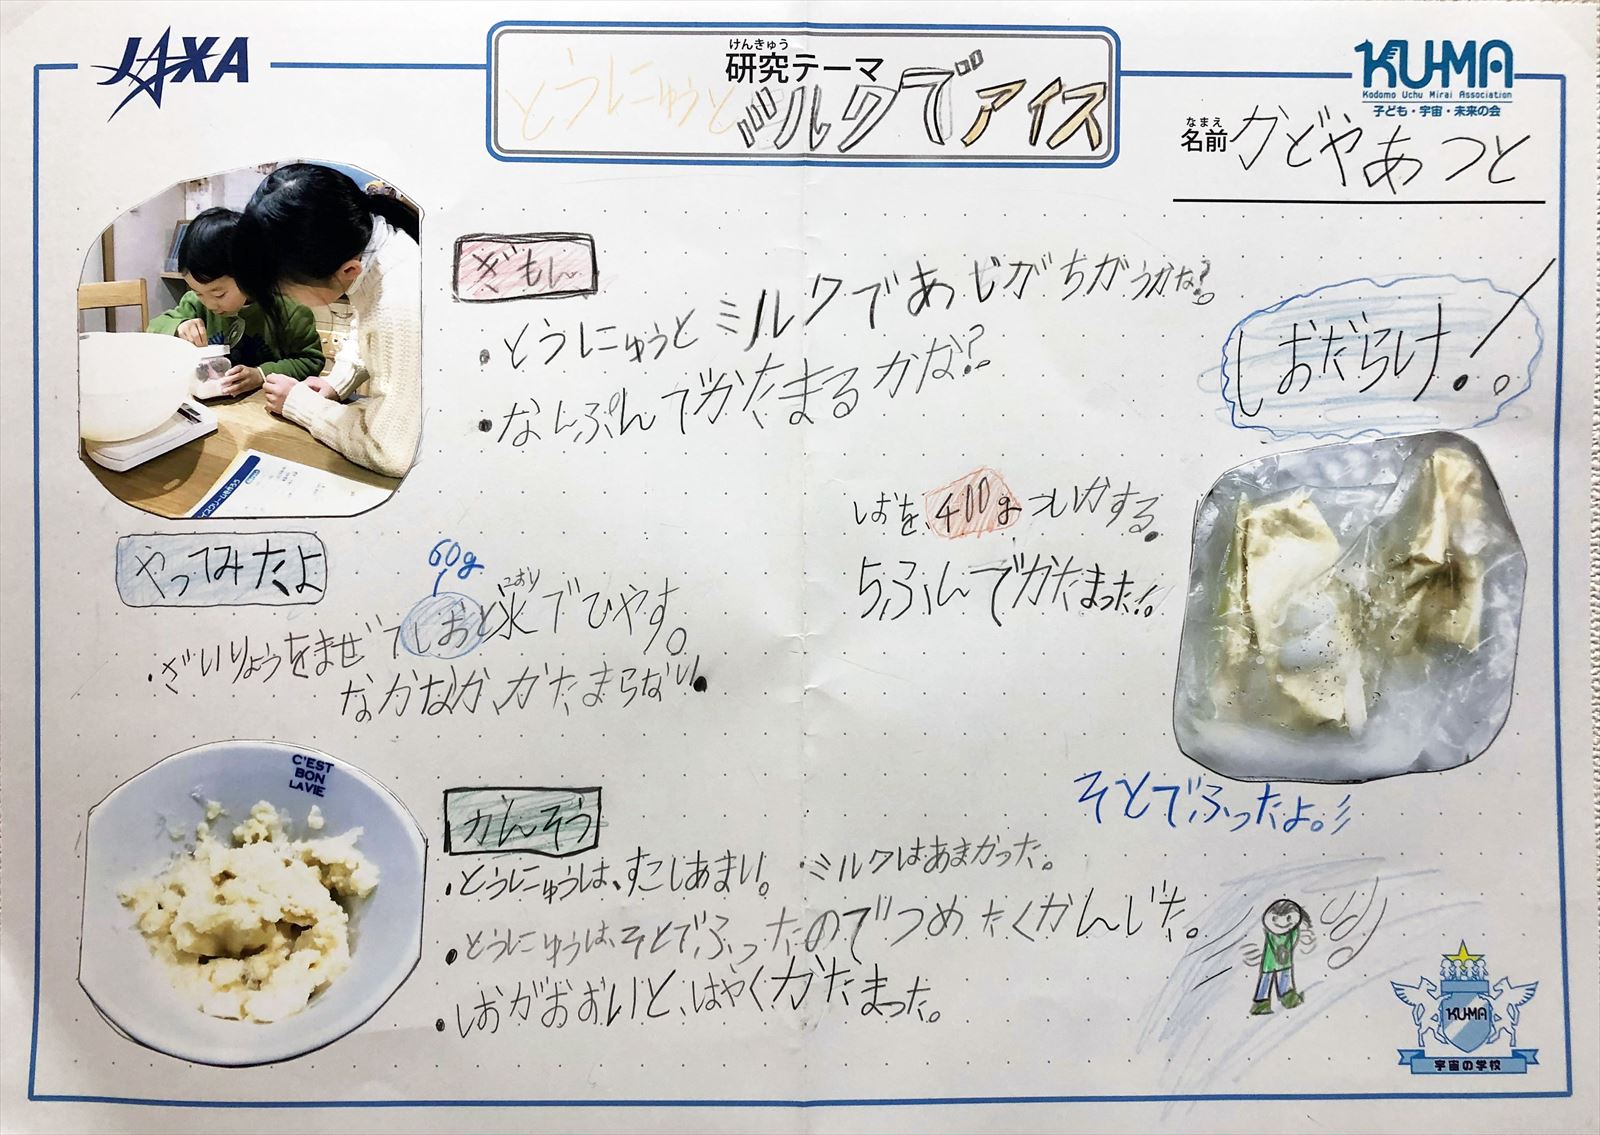 JAXA
けんきゅう
研究テーマ
とうにゅうと
ミルクでアイス
KU-MA
Kodomo Uchu Mirai Association
子ども・宇宙・未来の会
なまえ
名前 かどやあつと
ぎもん
・とうにゅうとミルクであじがちがうかな?。
・なんぷんでかたまるかな?
しおだらけ!。
しおを、400gついかする。
5ふんでかたまった!。
やってみたよ
60g
こおり
・ざいりょうをまぜてしおと氷でひやす。
なかなか、かたまらない。
そとでふったよ。
C'EST
BON
LAVIE
かんそう
・とうにゅうは、すこしあまい。 ・ミルクはあまかった。
・とうにゅうは、そとでふったのでつめたくかんじた。
・しおがおおいと、はやくかたまった。
KU-MA
宇宙の学校